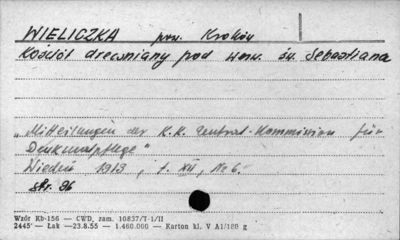 WIELICZKA pow. Kraków
Kościół drewniany pod wezw. św. Sebastiana
„Mitteilungen der K.K. Zentral-Kommission für
Denkmalpflege"
Wiedeń 1913, t. XII, Nr 6.
str. 86
Wzór Kb-156 — CWD, zam. 10837/T-1/II
2445 — Łak —23.8.55 — 1.460.000 — Karton kl. V A1/188 g